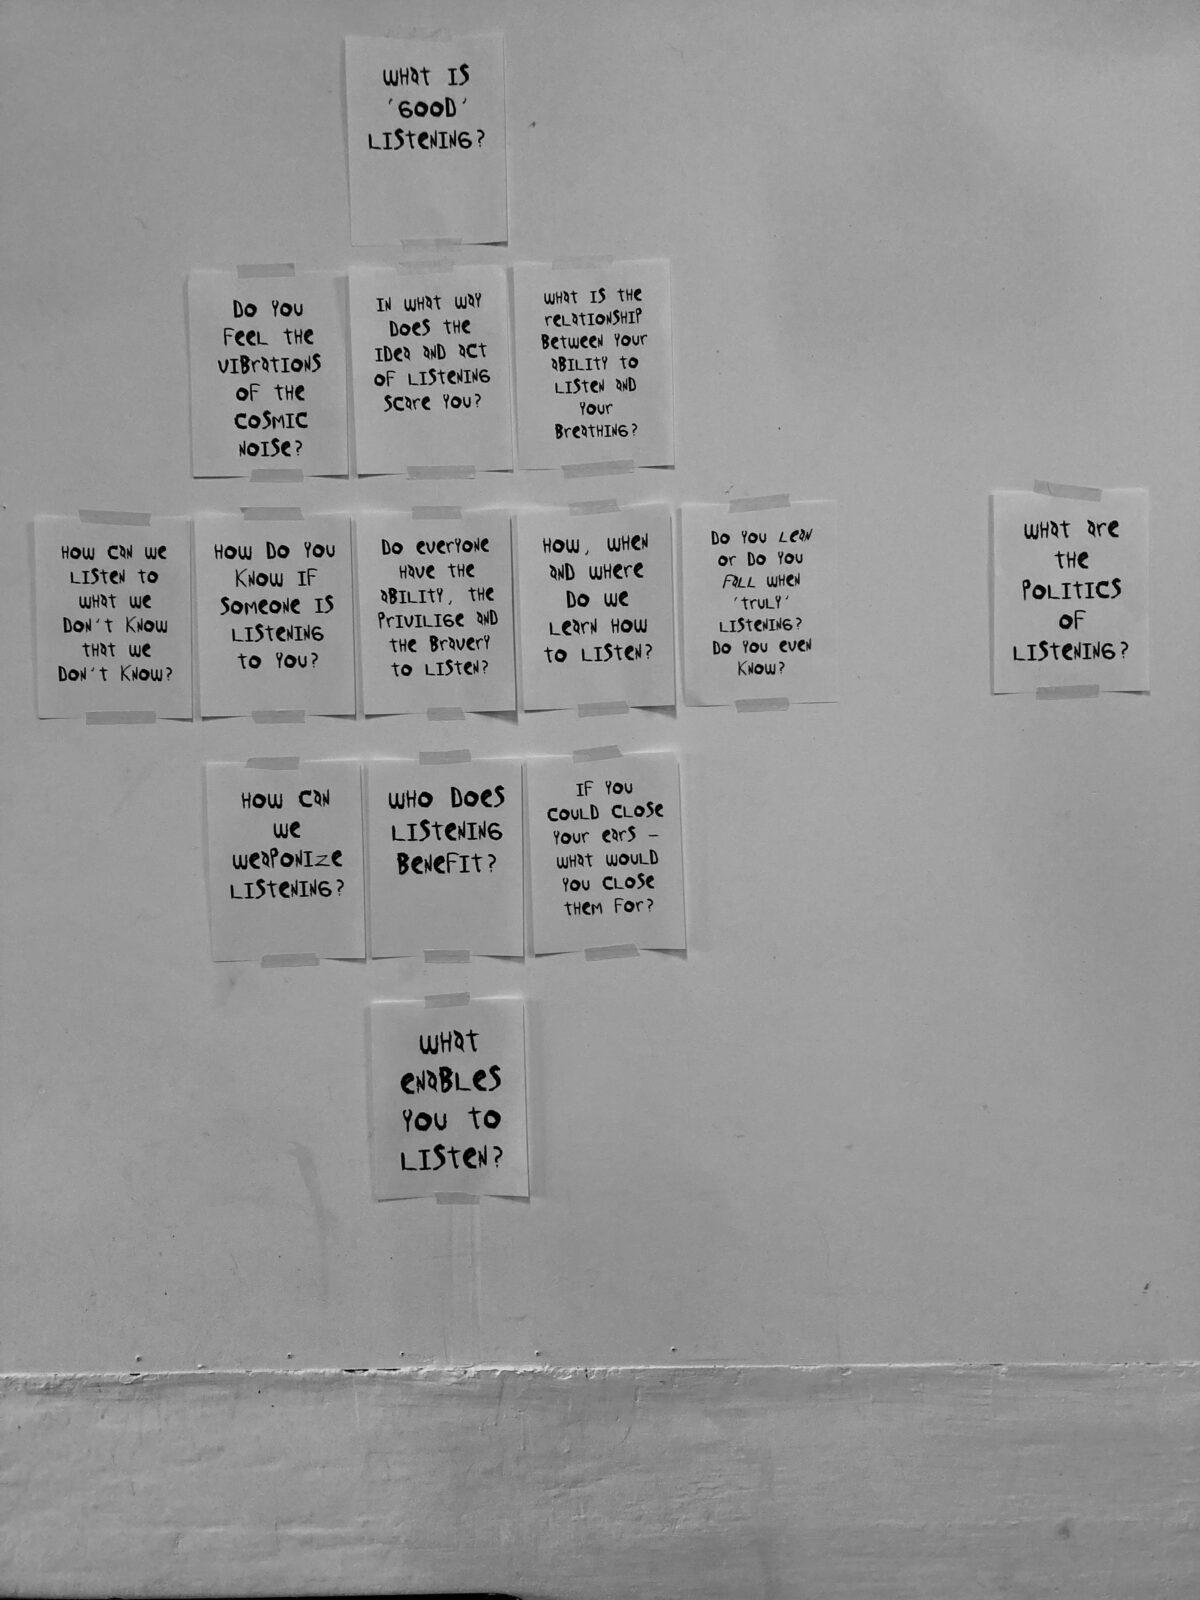 WHAT IS
'GOOD'
LISTENING?
DO YOU
FEEL THE
VIBRATIONS
OF THE
COSMIC
NOISE?
IN WHAT WAY
DOES THE
IDEA AND ACT
OF LISTENING
SCARE YOU?
WHAT IS THE
RELATIONSHIP
BETWEEN YOUR
ABILITY TO
LISTEN AND
YOUR
BREATHING?
HOW CAN WE
LISTEN TO
WHAT WE
DON'T KNOW
THAT WE
DON'T KNOW?
HOW DO YOU
KNOW IF
SOMEONE IS
LISTENING
TO YOU?
DO EVERYONE
HAVE THE
ABILITY, THE
PRIVILIGE AND
THE BRAVERY
TO LISTEN?
HOW, WHEN
AND WHERE
DO WE
LEARN HOW
TO LISTEN?
DO YOU LEAN
OR DO YOU
FALL WHEN
'TRULY'
LISTENING?
DO YOU EVEN
KNOW?
WHAT ARE
THE
POLITICS
OF
LISTENING?
HOW CAN
WE
WEAPONIZE
LISTENING?
WHO DOES
LISTENING
BENEFIT?
IF YOU
COULD CLOSE
YOUR EARS –
WHAT WOULD
YOU CLOSE
THEM FOR?
WHAT
ENABLES
YOU TO
LISTEN?